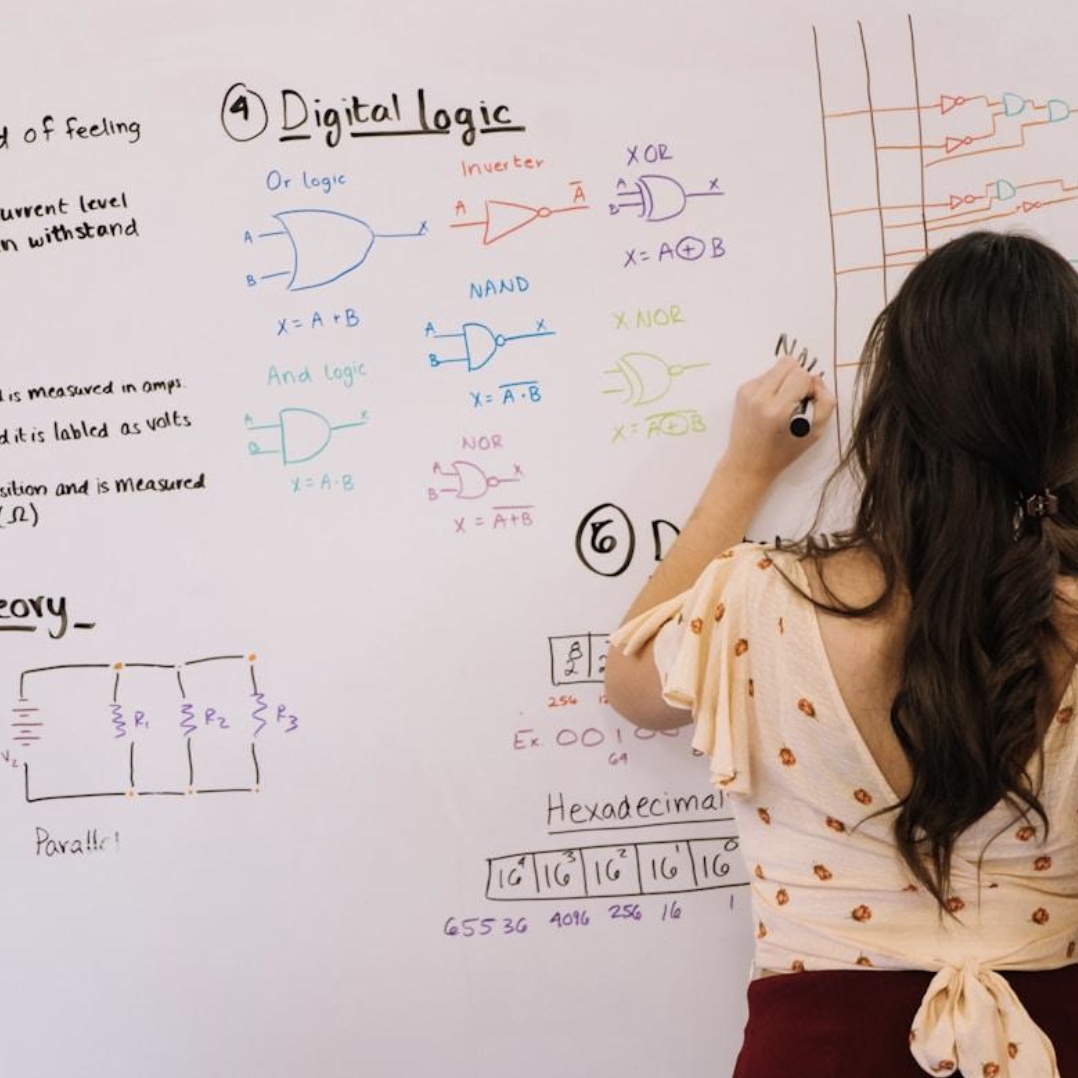 d of feeling
urrent level
n withstand
d is measured in amps.
d it is labled as volts
sition and is measured
(Ω)
eory
R1
R2
R3
Parallel
④ Digital logic
Or logic
A
B
X
X = A + B
And logic
A
X
X = A·B
Inverter
A
A̅
NAND
A
B
X
X = A̅·̅B̅
NOR
A
B
X
X = A̅+̅B̅
XOR
A
B
X
X = A⊕B
XNOR
X = A̅⊕̅B̅
⑤ D
256
Ex. 001
64
Hexadecimal
16⁴ 16³ 16² 16¹ 16⁰
65536 4096 256 16 1